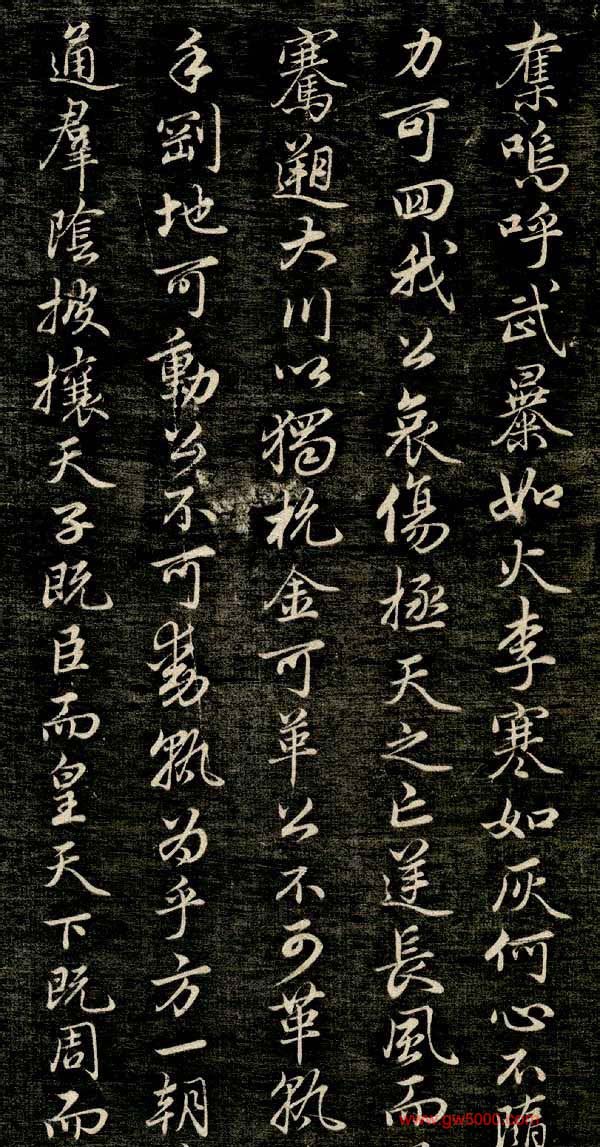 奪嗚呼武暴如火李寒如灰何心不
力可囬我公哀傷拯天之亡逆長風而
騫遡大川以獨杭金可革公不可革孰
乎剛地可動公不可動孰為乎方一朝
通羣陰披攘天子既臣而皇天下既周而
www.gw5000.com